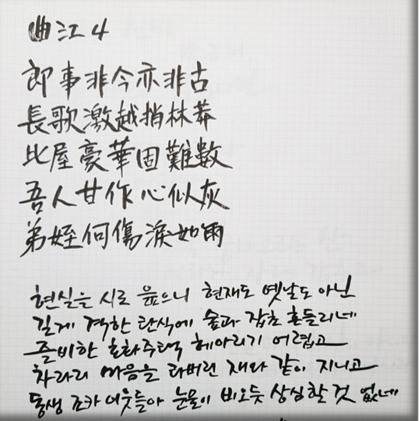 曲江 4
郎事非今亦非古
長歌激越捎林莽
比屋豪華固難數
吾人甘作心似灰
弟姪何傷淚如雨
현실을 시로 읊으니 현재도 옛날도 아닌
길게 격한 탄식에 숲과 잡초 흔들리네
즐비한 호화주택 헤아리기 어렵고
차라리 마음을 타버린 재와 같이 지니고
동생 조카 어웃들아 눈물이 비오듯 상심할 것 없네